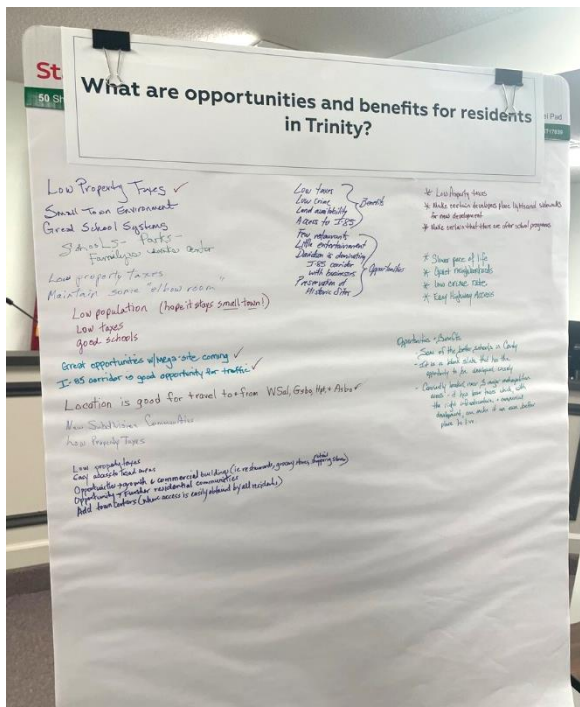 St
50 Sh
What are opportunities and benefits for residents
in Trinity?
Pad
Low Property Taxes ✓
Small Town Environment
Great School Systems
Schools - Parks -
center
Low property taxes
Maintain some "elbow room"
Low population (hope it stays small-town!)
Low taxes
good schools
Great opportunities w/Mega-site coming ✓
I-85 corridor is good opportunity for traffic ✓
Location is good for travel to+from WSal, Gsbo, Hpt, + Asbo ✓
New Subdivision Communities
Low Property Taxes
Low property taxes
Easy access to local areas
Opportunities → growth + commercial buildings (ie restaurants, grocery stores, shopping stores)
Opportunity → Further residential communities
Add town centers (where access is easily obtained by all residents)
Low taxes
Low crime
Land availability
Access to I-85
Benefits
Few restaurants
Little entertainment
Davidson is dominating
I-85 corridor
with businesses
Preservation of
Historic Sites
Opportunities
* Low Property taxes
* Make certain developers place lights and sidewalks
for new development
* Make certain that there are after school programs
* Slower pace of life
* Quiet neighborhoods
* Low crime rate
* Easy Highway Access
Opportunities + Benefits
- Some of the better schools in County
- Sits as a blank slate that has the
opportunity to be designed
- Centrally located near 3 major metropolitan
areas - if
development,
place to live